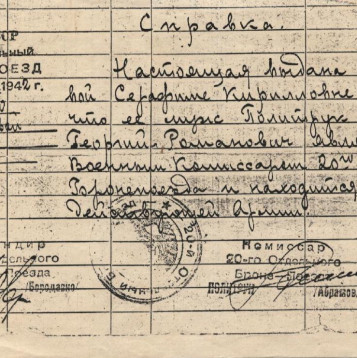 Справка.
СР
льный
ОЕЗД
1942 г
Настоящая выдана
вой Серафиме Кирилловне
что ее муж Политрук
Георгий Романович явл
Военным Комиссаром 20го
Бронепоезда и находится
действующей Армии
ндир
дельного
Поезда
/Бородавко/
Комиссар
20-го Отдельного
Броне-Пое
ПОЛИТРУК
/Абрамов
20-й От